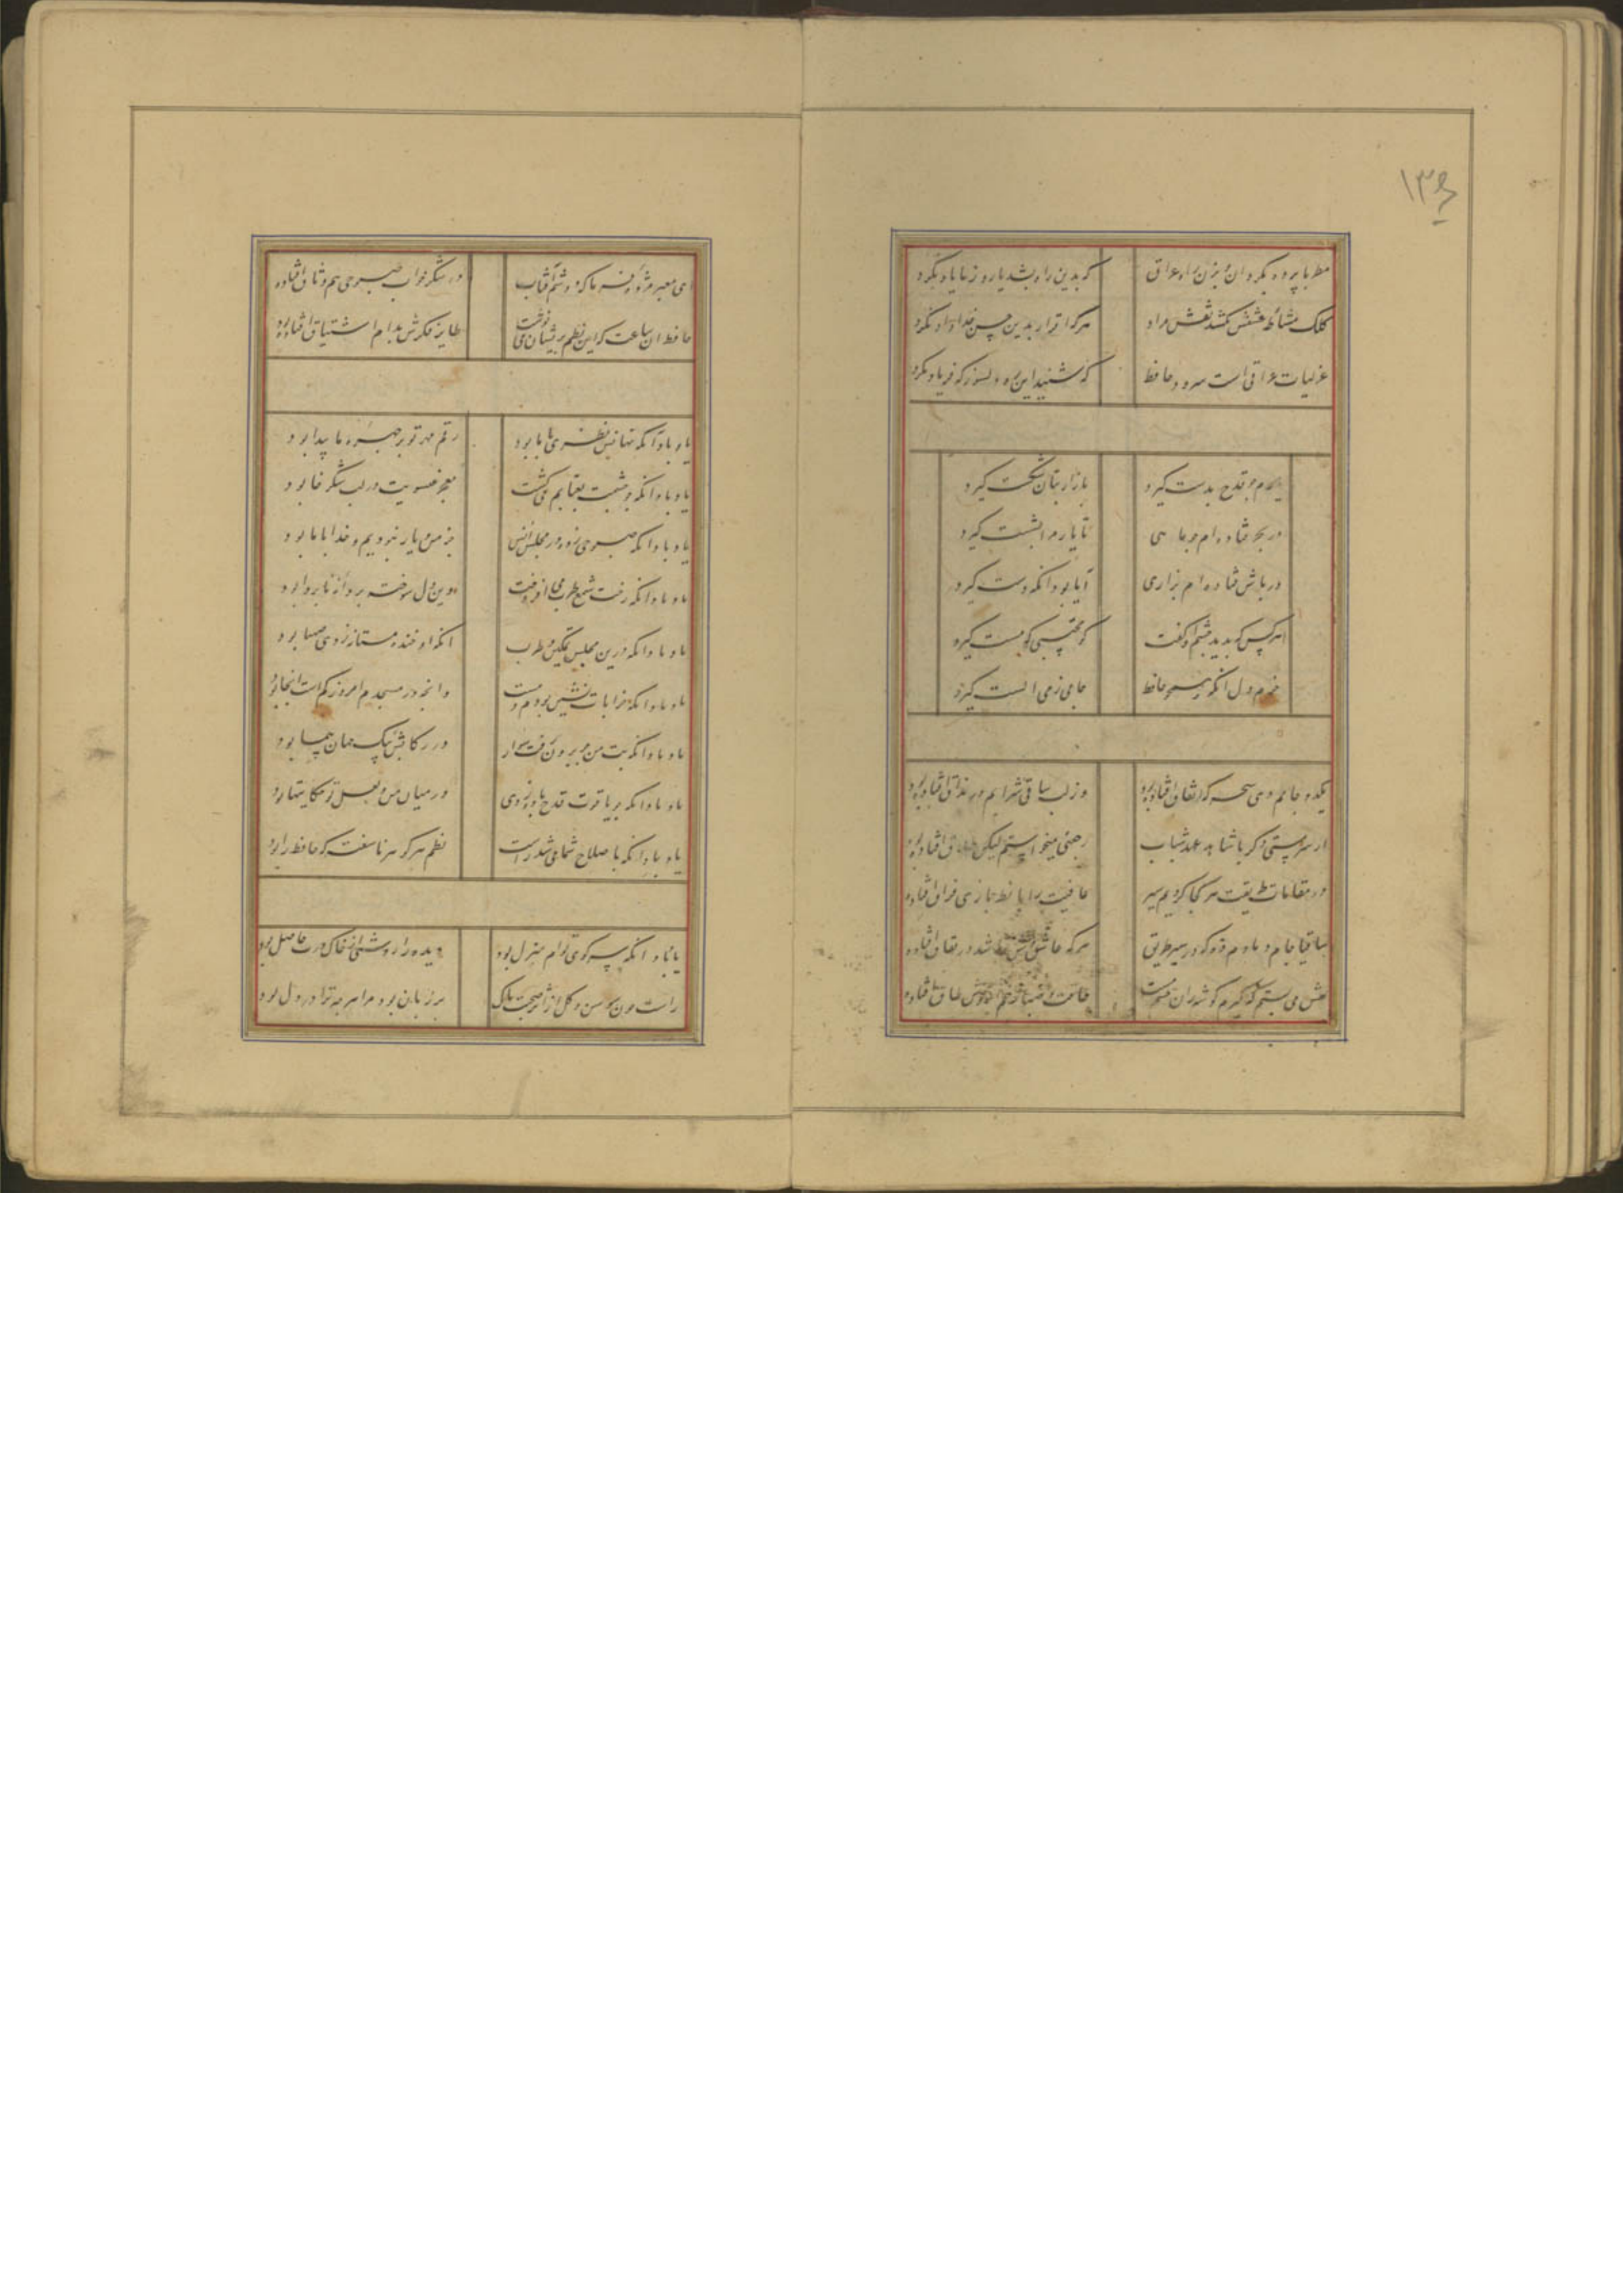 ۱۳۶
مطربا پرده بگردان و بزن راه عراق که بدین راه بشد یار و ز ما یاد نکرد
کلک مشاطه نقش مراد هرکه اقرار بدین حسن خداداد نکرد
غزلیات عراقی است سرود حافظ که شنید این ره دلسوز که فریاد نکرد
یارم چو قدح بدست گیرد بازار بتان شکست گیرد
در بحر فتاده ام چو ماهی تا یار مرا بشست گیرد
در پاش فتاده ام بزاری آیا بود انکه دست گیرد
هرکس که بدید چشم او گفت کو محتسبی که مست گیرد
خرم دل انکه همچو حافظ جامی ز می الست گیرد
یکدو جامم دی سحرکه اتفاق افتاده بود وز لب ساقی شرابم در مذاق افتاده بود
از سر مستی دکر با شاهد عهد شباب رجعتی میخواستم لیکن افتاده بود
در مقامات طریقت هر کجا کردیم سیر عافیت را با نظربازی فراق افتاده
ساقیا جام دمادم ده که در سیر طریق هرکه عاشق وش نباشد در نفاق افتاده
نقش می بستم که گیرم گوشه زان چشم مست طاقت و صبر از خم ابروش طاق افتاده
ای معبر مژده فرما که دوشم آفتاب در شکر خواب صبوحی هم وثاق افتاده
حافظ ان ساعت که این نظم پریشان می نوشت طایر فکرش بدام اشتیاق افتاده بود
یاد باد آنکه نهانیش نظری با ما بود رقم مهر تو بر چهره ما پیدا بود
یاد باد انکه چو چشمت بعتابم می کشت معجز عیسویت در لب شکرخا بود
یاد باد انکه صبوحی زده در مجلس انس جز من و یار نبودیم و خدا با ما بود
یاد باد انکه رخت شمع طرب می افروخت وین دل سوخته پروانه ناپروا بود
یاد باد انکه درین مجلس تمکین و طرب انکه او خنده مستانه زدی صهبا بود
یاد باد انکه خرابات نشین بودم و مست وانچه در مسجدم امروز کم است انجا بود
یاد باد انکه بت من چو برون رفت سوار در رکابش پیک جهان پیما بود
یاد باد انکه چو یاقوت قدح خنده زدی در میان من و لعل تو حکایتها بود
یاد باد انکه باصلاح شما می شد راست نظم هر گوهر ناسفته که حافظ را بود
یاد باد انکه سر کوی توام منزل بود دیده را روشنی از خاک درت حاصل بود
راست چون سوسن و گل از اثر صحبت پاک بر زبان بود مرا هرچه ترا در دل بود